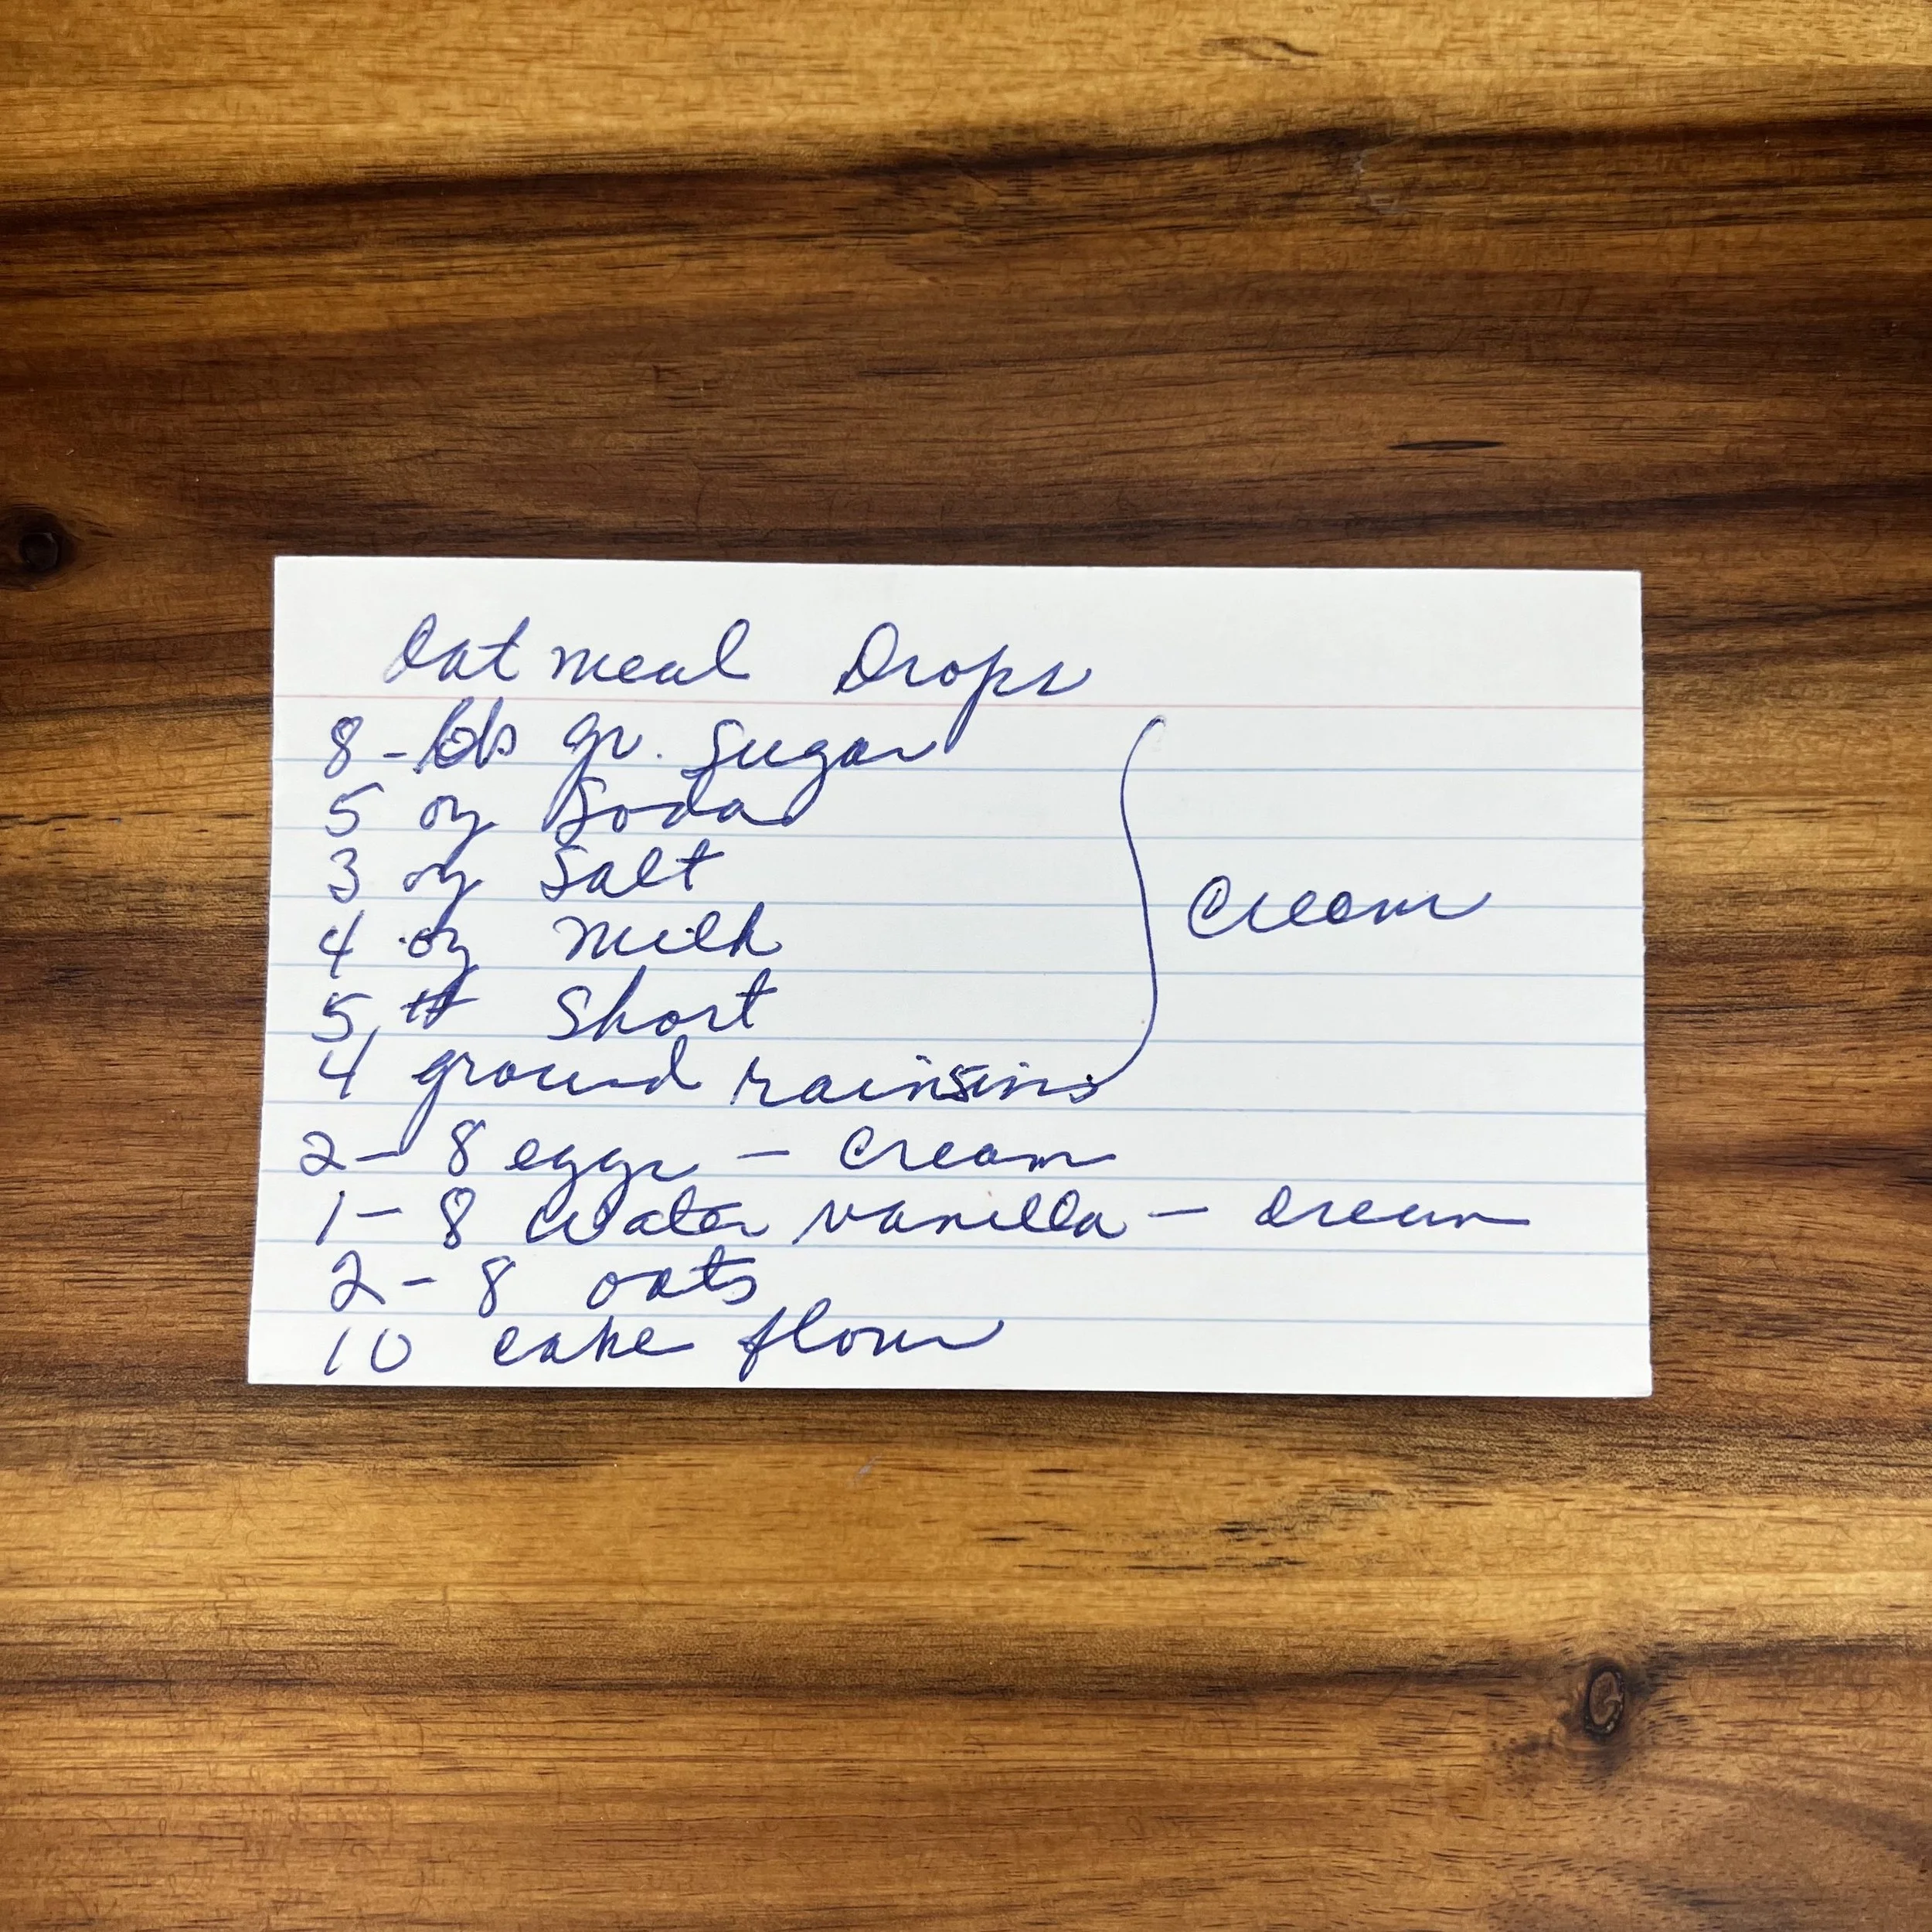 Oatmeal Drops
8 - lbs gr. Sugar
5 oz Soda
3 oz Salt
4 oz Milk
5 # Short
Cream
4 ground rainsins
2 - 8 eggs - Cream
1 - 8 Water vanilla - cream
2 - 8 oats
10 cake flour